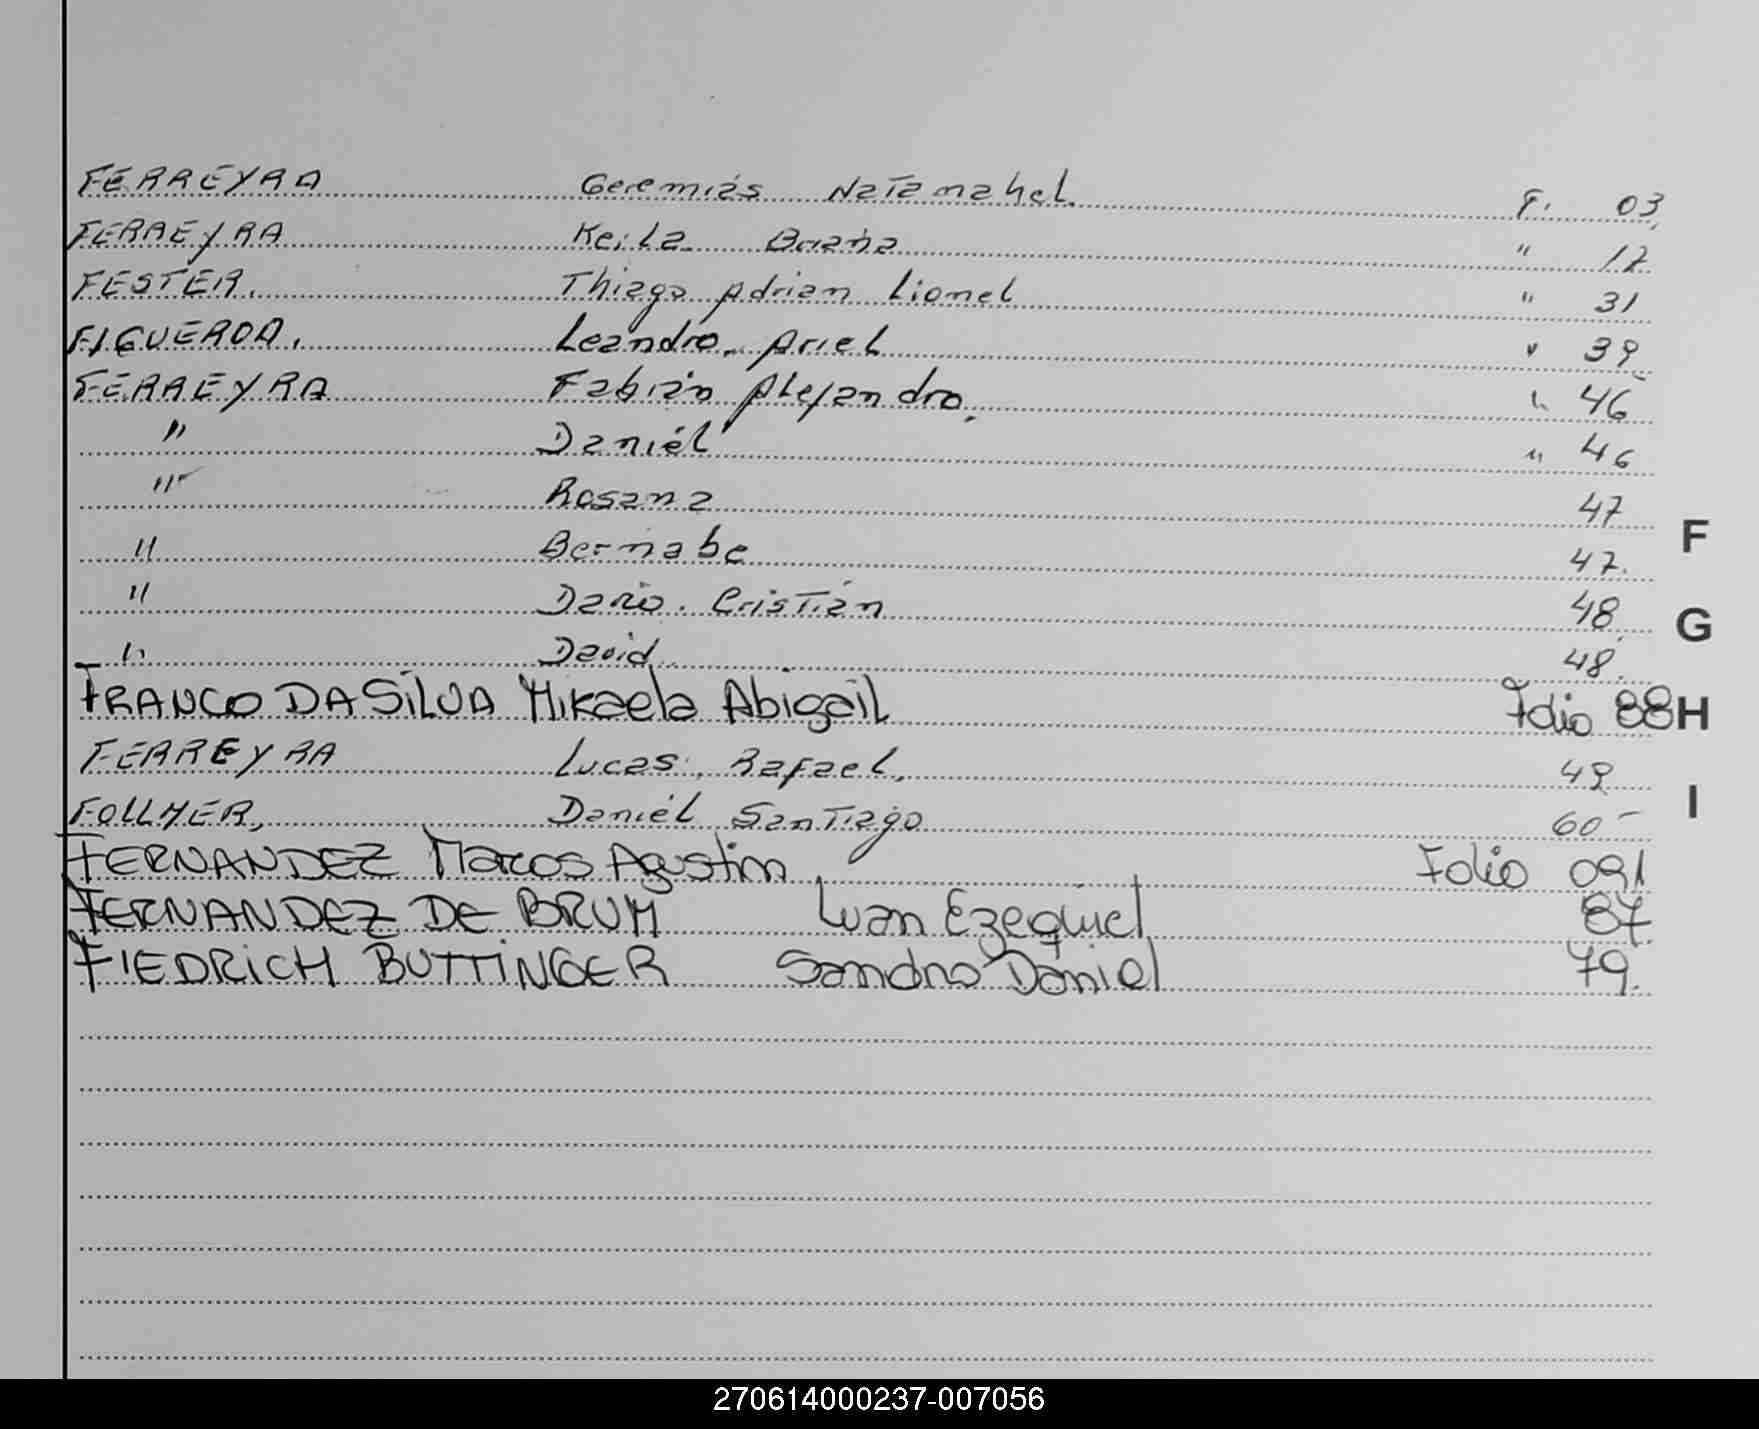 FERREYRA Geremiás Natanahel. F. 03,
FERREYRA Keila Briana " 12
FESTER. Thiago Adrian Lionel " 31
FIGUEROA. Leandro Ariel " 39
FERREYRA Fabián Alejandro. " 46
" Daniél " 46
" Rosana 47
" Bernabe 47.
" Dario. Cristián 48
" David 48.
FRANCO DA SiLVA Mikaela Abigail Folio 88
FERREYRA Lucas, Rafael. 49
FOLLMER, Daniél Santiago 60-
FERNANDEZ Marcos Agustin Folio 091
FERNANDEZ DE BRUM Luan Ezequiel 87.
FIEDRiCH BUTTiNGER Sandro Daniel 79.
F
G
H
I
270614000237-007056